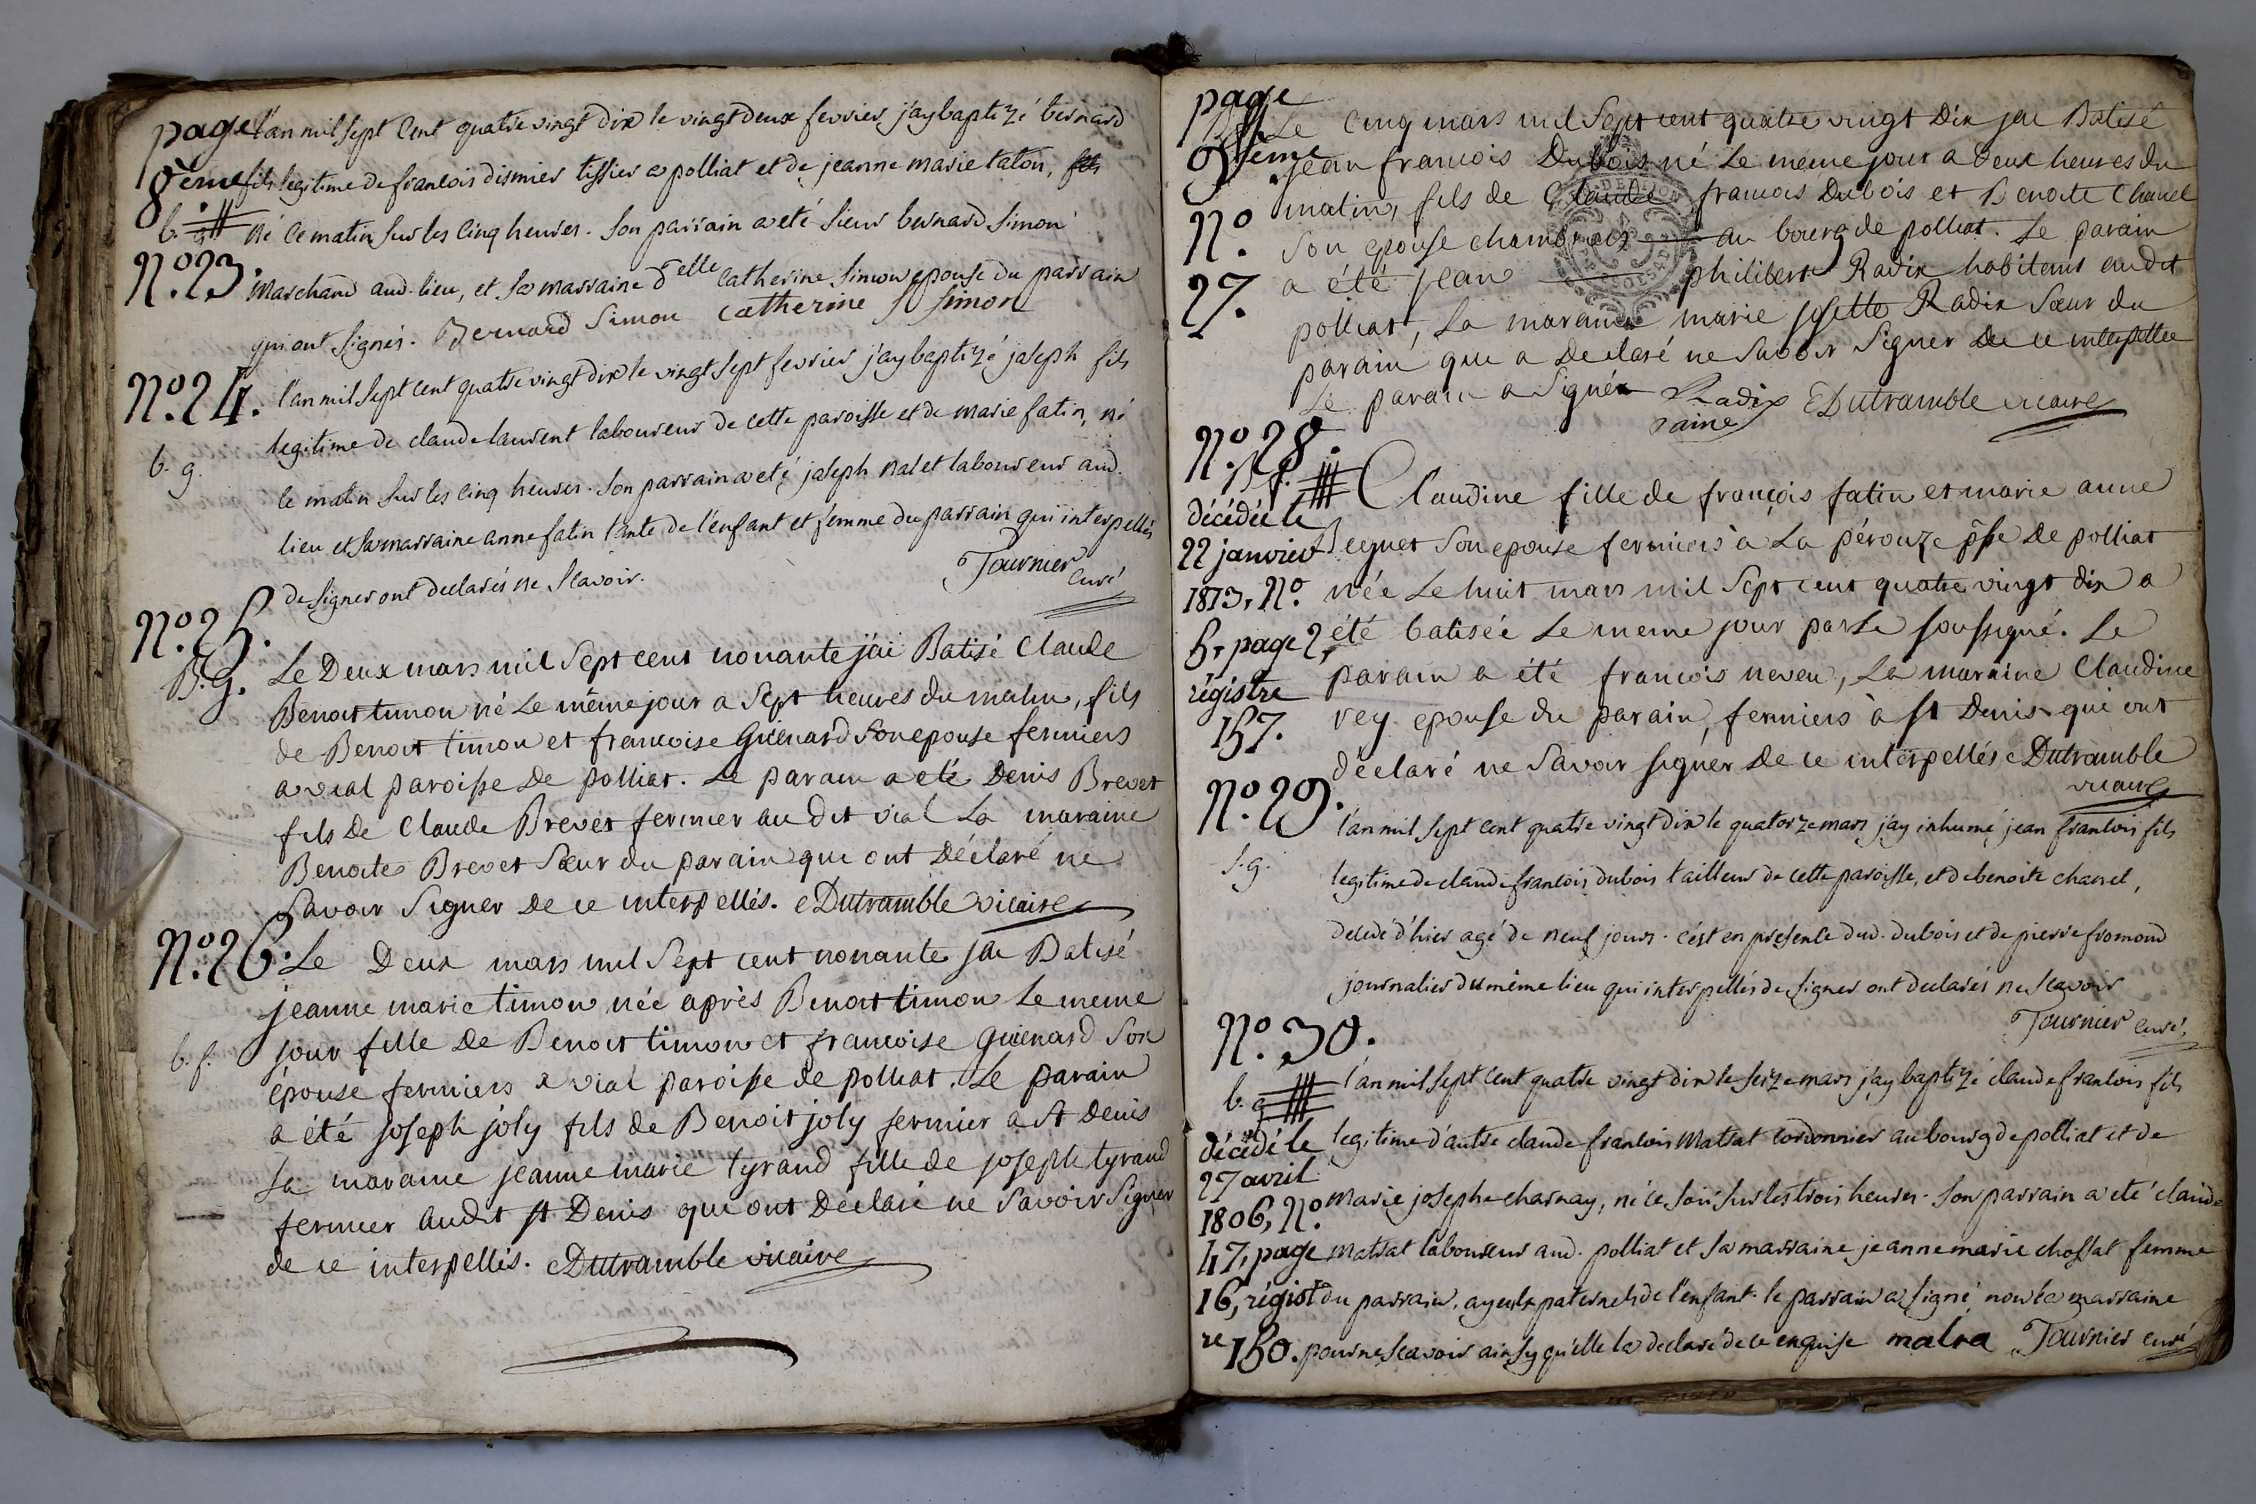 page l'an mil sept cent quatre vingt dix le vingt deux fevrier j'ay baptizé bernard
8ème fils legitime de francois dismier tissier a polliat et de jeanne marie taton, fils
b. g né ce matin sur les cinq heures. son parrain a eté sieur bernard simon
N.o 23. marchand aud. lieu, et sa marraine d elle catherine simon epouse du parrain
qui ont signés. Bernard Simon catherine simon
N.o 24. l'an mil sept cent quatre vingt dix le vingt sept fevrier j'ay baptizé joseph fils
legitime de claude laurent laboureur de cette paroisse et de marie fatin, né
b. g. le matin sur les cinq heures. son parrain a eté joseph nalet laboureur aud.
lieu et sa marraine anne fatin tante de l'enfant et femme du parrain qui interpellés
de signer ont declarés ne scavoir. Tournier curé
N.o 25.
B. g. Le Deux mars mil sept cent nonante j'ai Batisé Claude
Benoit timon né Le même jour a sept heures du matin, fils
de Benoit timon et francoise Guénard son epouse fermiers
a vial paroisse De polliat. Le parain a eté Denis Brevet
fils De Claude Brevet fermier au dit vial La maraine
Benoite Brevet sœur du parain qui ont Déclaré ne
savoir signer De ce interpellés. Dutramble vicaire
N.o 26. Le Deux mars mil sept cent nonante jai Batisé
jeanne marie timon née après Benoit timon Le meme
b. f. jour fille De Benoit timon et francoise guénard son
épouse fermiers a vial paroisse de polliat. Le parain
a été joseph joly fils de Benoit joly fermier a st Denis
La maraine jeanne marie tyrand fille de joseph tyrand
fermier audit st Denis qui ont Déclaré ne savoir signer
de ce interpellés. Dutramble vicaire
page
9ème
N.o
27.
Le cinq mars mil sept cent quatre vingt Dix jai Batisé
jean francois Dubois né Le meme jour a Deux heures du
matin, fils de Claude francois Dubois et Benoite Chanel
son epouse au bourg de polliat. Le parain
a été jean philibert Radix habitant audit
polliat, La maraine marie josette Radix sœur du
parain qui a Declaré ne savoir signer De ce interpellée
Le parain a signé Radix Dutramble vicaire
N.o 28.
B. f.
décédée le
22 janvier
1813, N.o
5, page 2,
régistre
157.
Claudine fille de françois fatin et marie anne
Peguet son epouse fermiers à La pérouze psse De polliat
née Le huit mars mil sept cent quatre vingt dix a
été batisée Le meme jour par Le soussigné. Le
parain a été francois neveu, La maraine Claudine
rey epouse du parain, fermiers à st Denis qui ont
déclaré ne savoir signer De ce interpellés Dutramble
vicaire
N.o 29.
s. g.
l'an mil sept cent quatre vingt dix le quatorze mars j'ay inhumé jean francois fils
legitime de claude francois dubois tailleur de cette paroisse, et de benoite chanel,
decedé d'hier agé de neuf jours. c'est en presence dud. dubois et de pierre fromond
journalier du même lieu qui interpellés de signer ont declarés ne scavoir
Tournier curé
N.o 30.
b. g
décédé le
27 avril
1806, N.o
47, page
16, régist
re 150.
l'an mil sept cent quatre vingt dix le seize mars j'ay baptizé claude francois fils
legitime d'autre claude francois matrat cordonnier au bourg de polliat et de
marie josephe charnay, né ce soir sur les trois heures. son parrain a eté claude
matrat laboureur aud. polliat et sa marraine jeanne marie chossat femme
du parrain, ayeuls paternels de l'enfant. le parrain a signé non la marraine
pour ne scavoir ainsy qu'elle la declaré de ce enquise matra Tournier curé